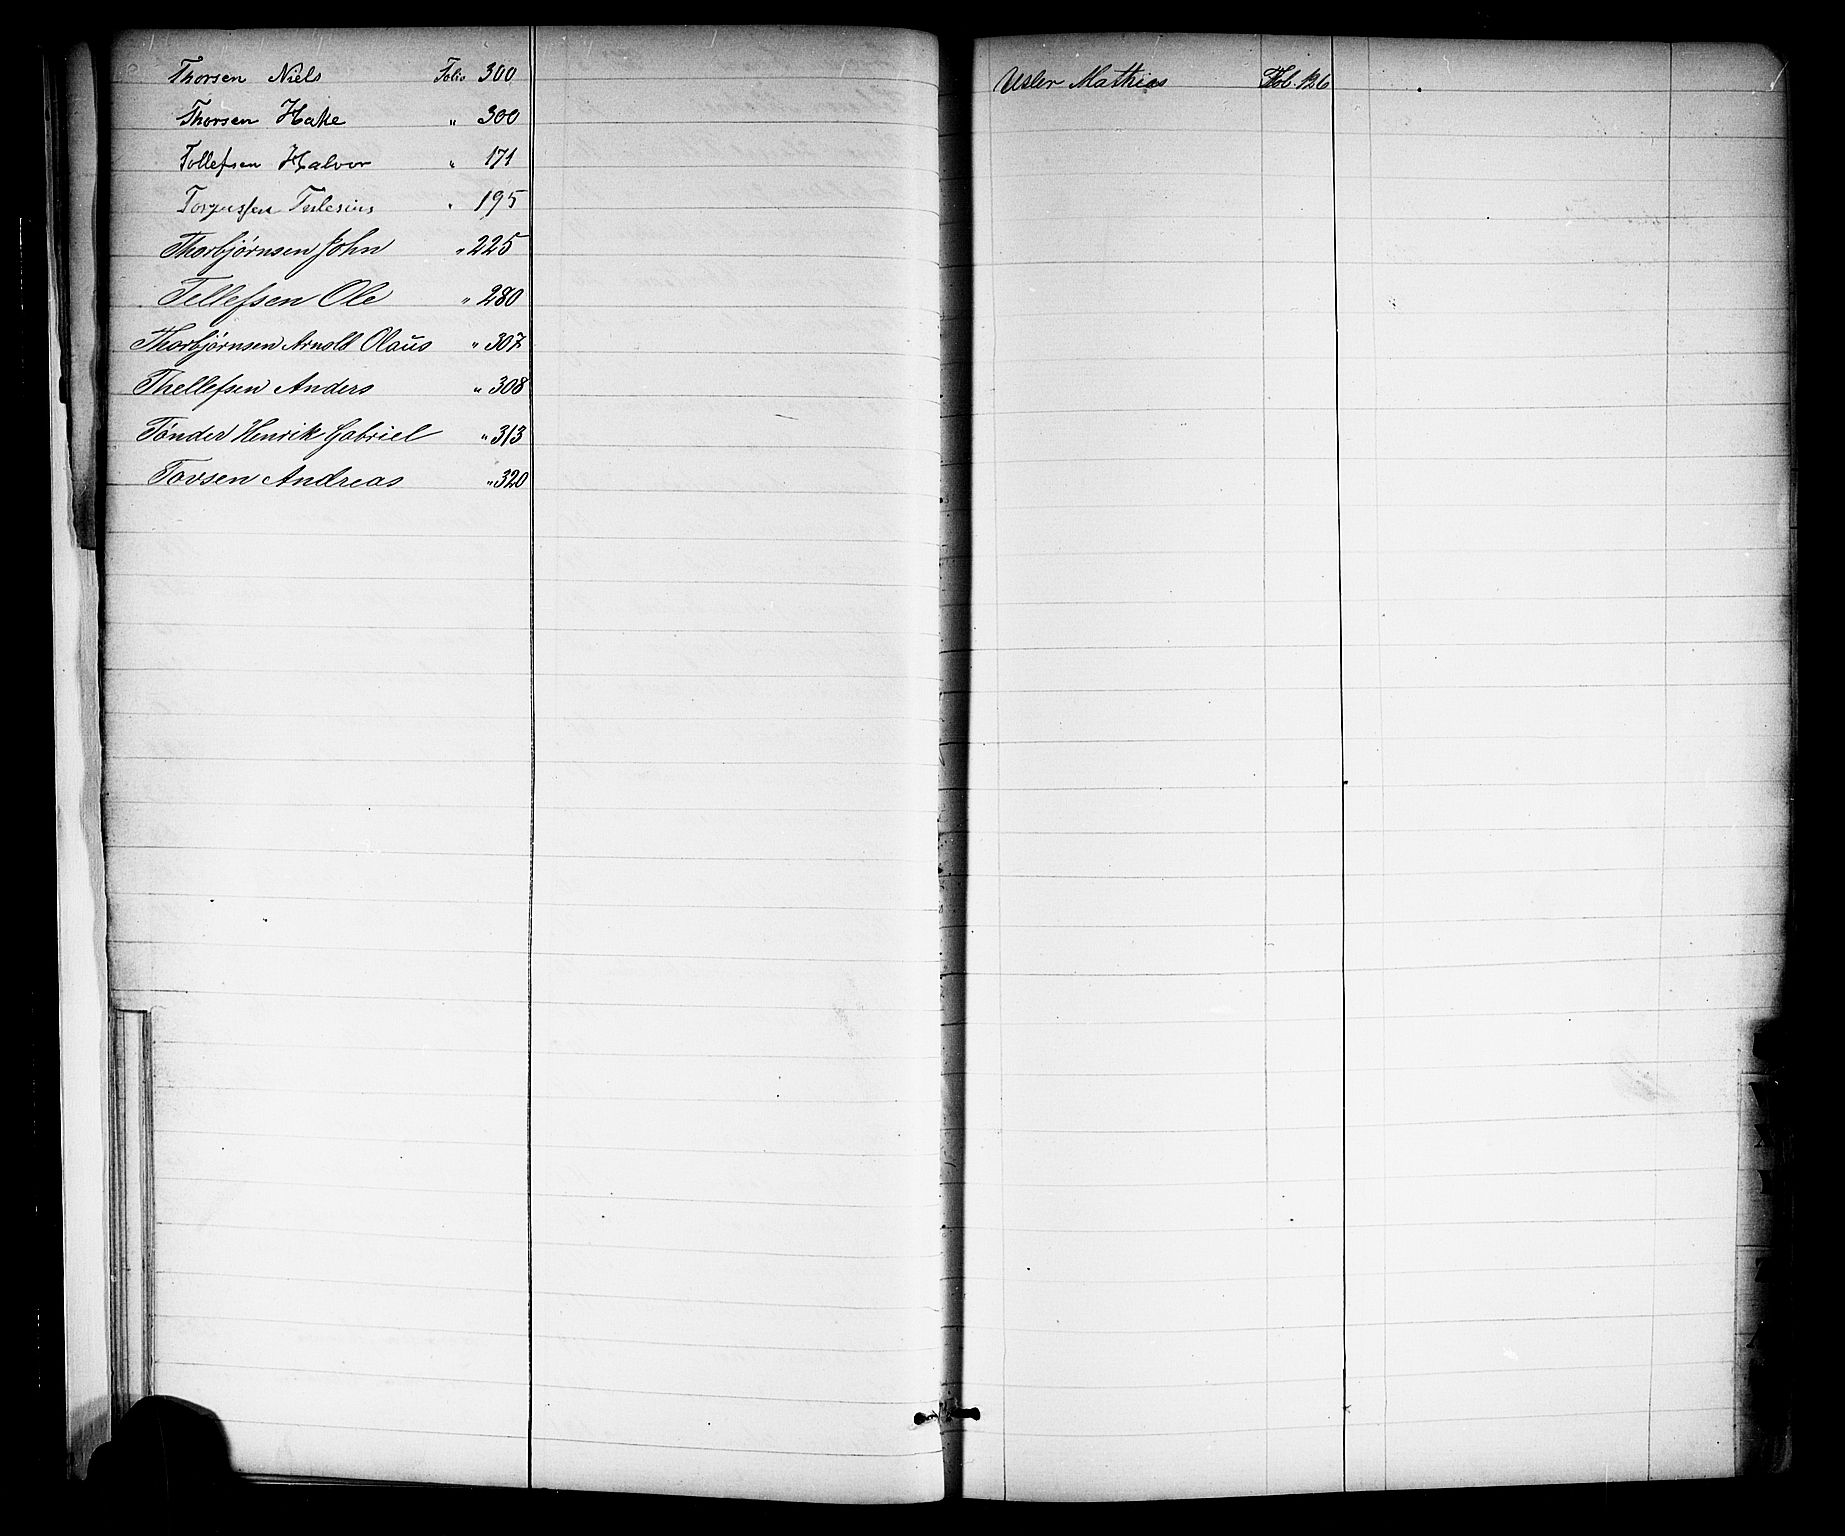 Thorsen Niels Folio 300
Thorsen Hake " 300
Tollefsen Halvor " 171
Torgussen " 195
Thorbjørnsen John " 225
Tellefsen Ole " 280
Thorbjørnsen Arnold Olaus " 307
Thellefsen Anders " 308
Tønder Henrik Gabriel " 313
Tovsen Andreas " 320
Usler Mathias Fol. 126